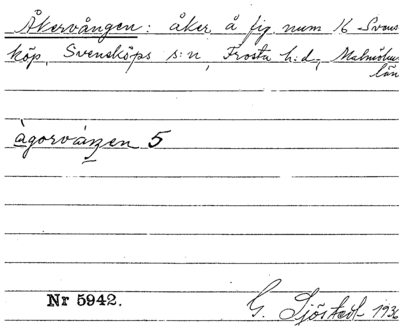 Åkervången: åker å fig. num 16 Svens
köp, Svensköps s:n, Frosta h:d, Malmöhus
län
àgorváŋen 5
Nr 5942.
G. Sjöstedt 193